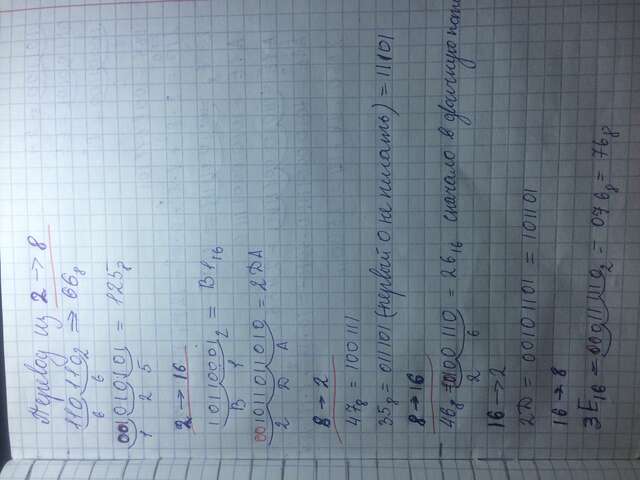 Перевод из 2 → 8
110110₂ ⇒ 66₈
6 6
001010101 = 125₈
1 2 5
2 → 16
10110001₂ = B1₁₆
B 1
001011011010 = 2DA
2 D A
8 → 2
47₈ = 100111
35₈ = 011101 (первый 0 не писать) = 11101
8 → 16
46₈ = 00100110 = 26₁₆ сначало в двоичную пот
2 6
16 → 2
2D = 00101101 = 101101
16 → 8
3E₁₆ = 000111110₂ = 076₈ = 76₈